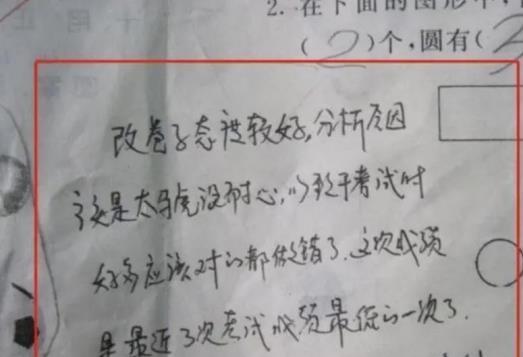 2. 在下面的图形中,
( 2 )个,圆有( 2
改卷子态度较好,分析原因
该是太马虎没耐心,以致于考试时
好多应该对的都做错了.这次成绩
是最近了次考试成绩最低的一次了.